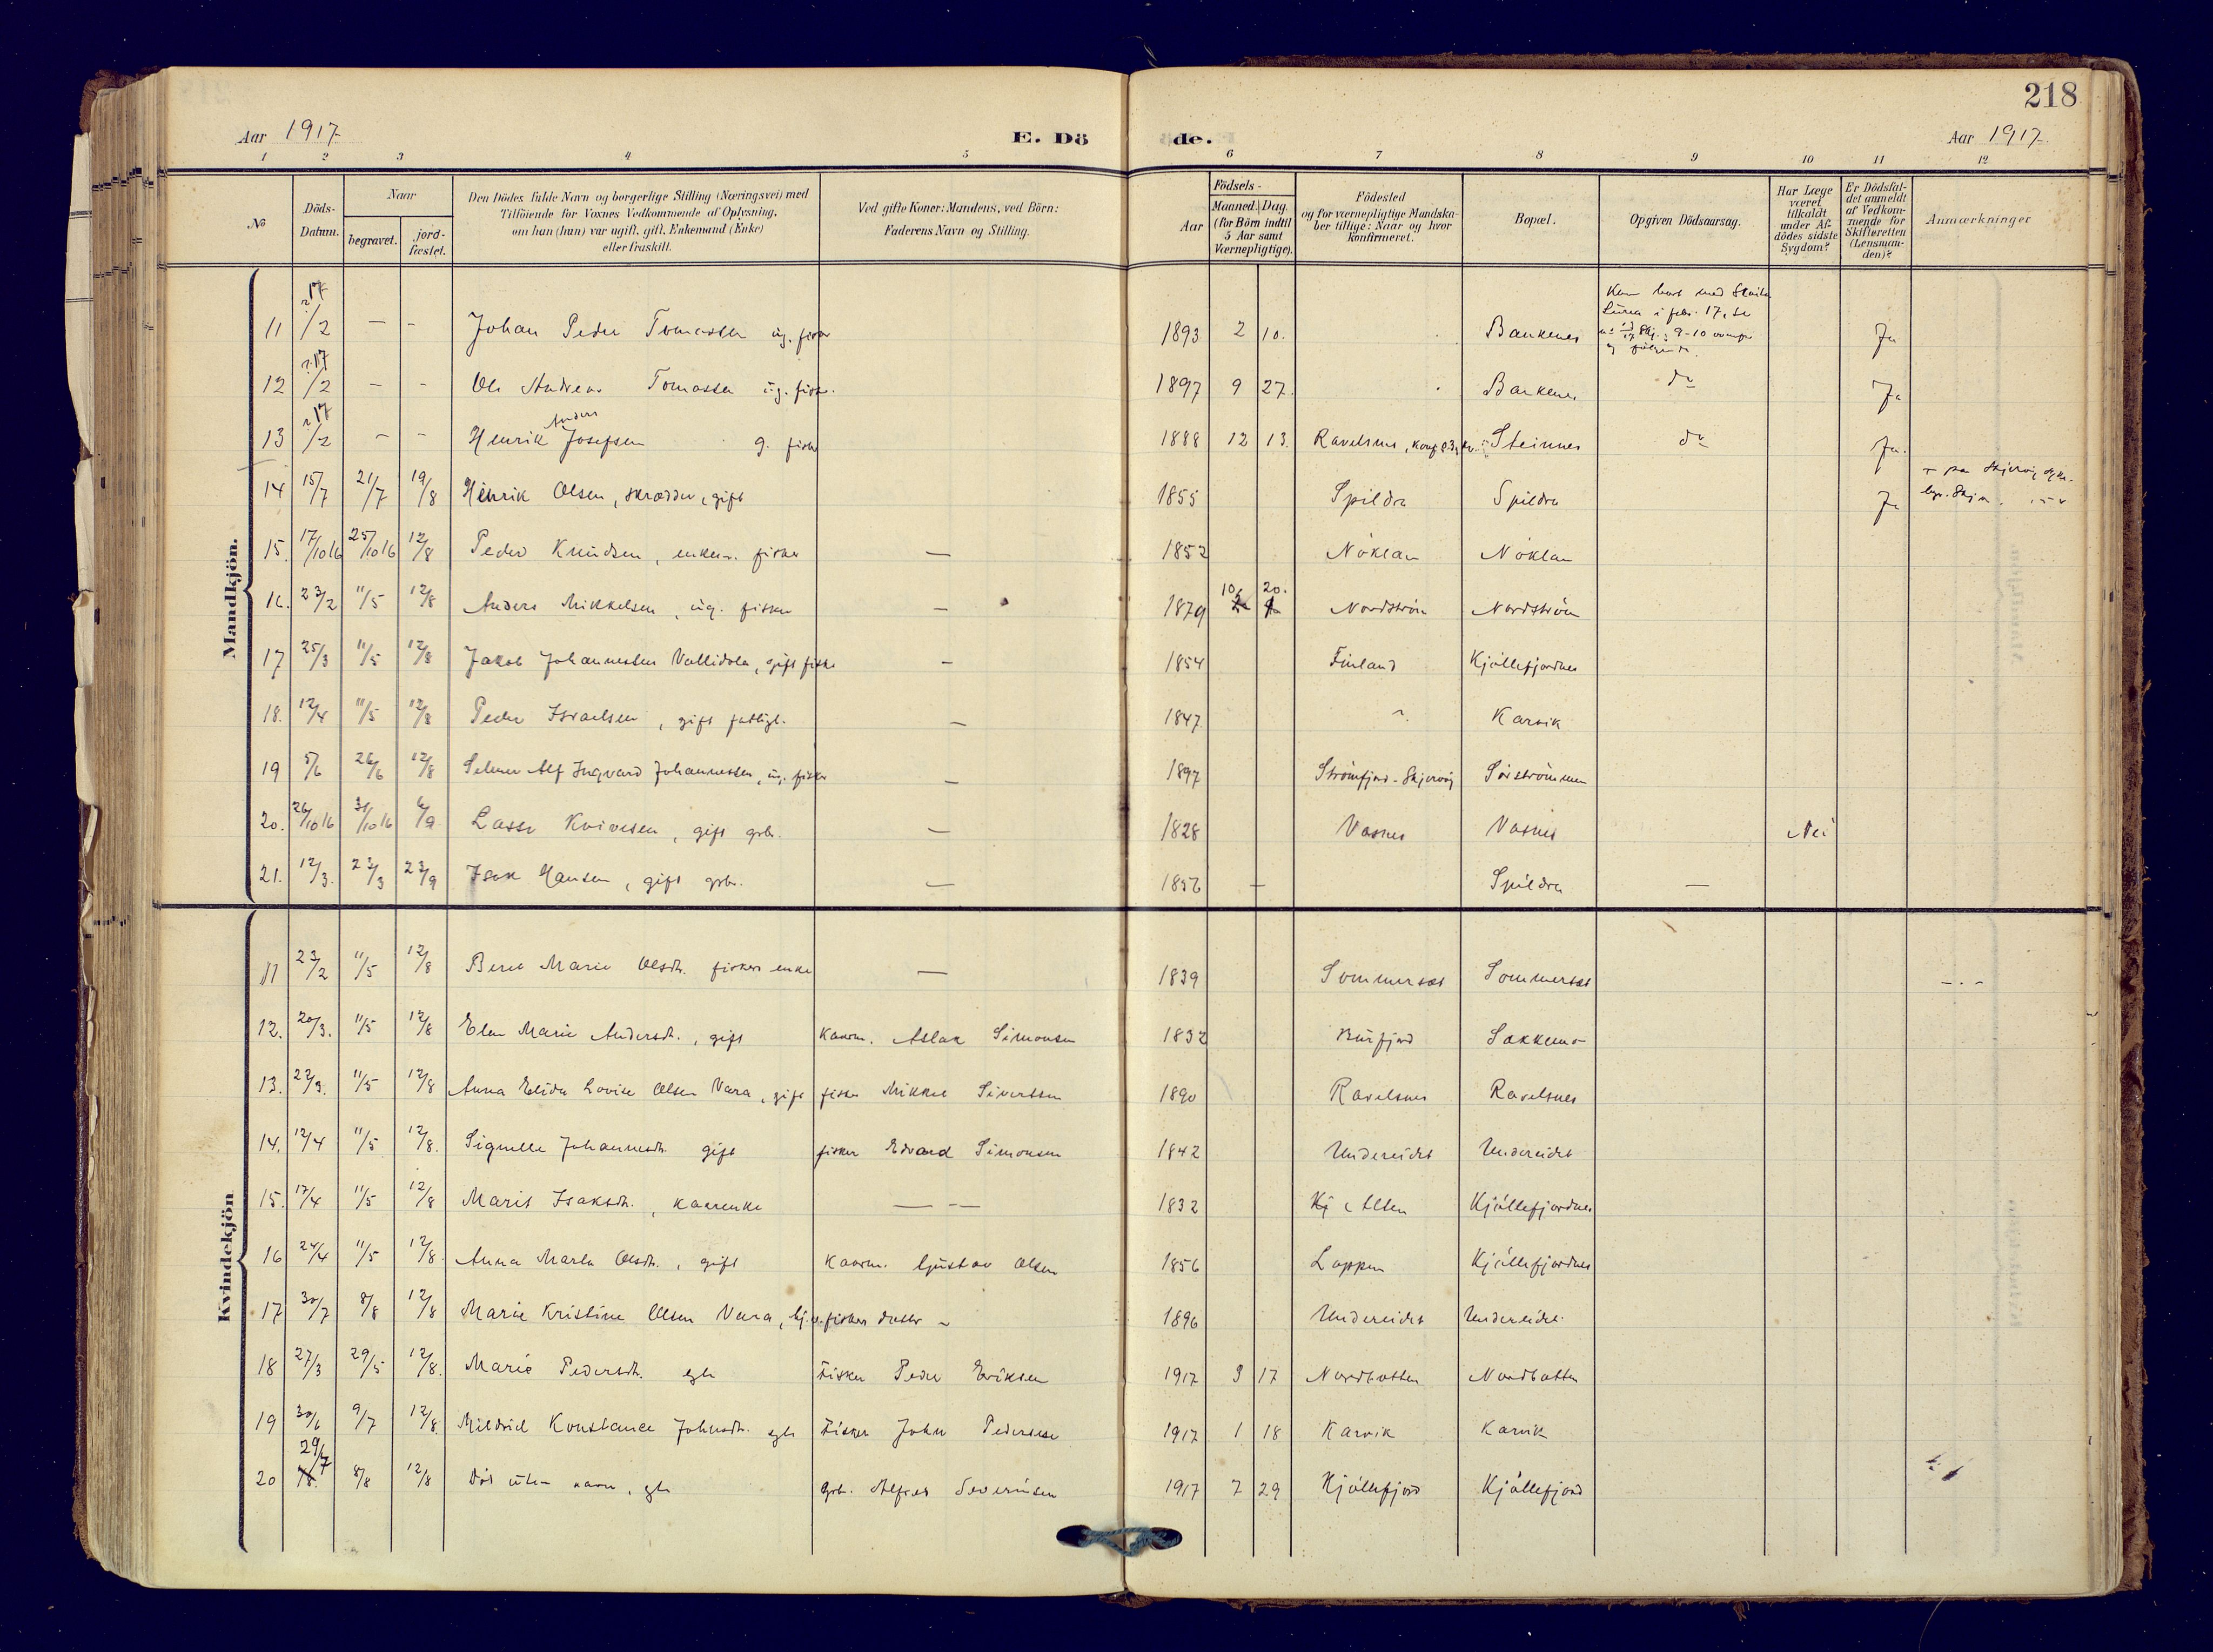 218
Aar 1917 E. Dö de. Aar 1917
1 2 3 4 5 6 7 8 9 10 11 12
№ Döds-Datum. Naar begravet. jord-fæstet. Den Dödes fulde Navn og borgerlige Stilling (Næringsvei) med Tilföiende for Voxnes Vedkommende af Oplysning, om han (hun) var ugift, gift, Enkemand (Enke) eller fraskilt. Ved gifte Koner: Mandens, ved Börn: Faderens Navn og Stilling. Aar Födsels- Maaned. Dag. (for Börn indtil 5 Aar samt Værnepligtige). Födested og for værnepligtige Mandskaber tillige: Naar og hvor konfirmeret. Bopæl. Opgiven Dödsaarsag. Har Læge været tilkaldt under Afdödes sidste Sygdom? Er Dödsfaldet anmeldt af Vedkommende for Skifteretten (Lensmanden)? Anmærkninger
Mandkjön.
11 17/2 — - Johan Peder Tomassen ug. fisker 1893 2 10. Bankenes Kom bort med i febr. 17, se Ja
12 17/2 - - Ole Andreas Tomassen ug. fisker. 1897 9 27. Bankenes do Ja
13 17/2 - - Henrik Anders Josefsen g. fisker 1888 12 13. Ravelsnes, Steinnes do Ja.
14 15/7 21/7 19/8 Henrik Olsen, skrædder, gift 1855 Spildra Spildra Ja på Skjervøy
15. 17/10 16 25/10 16 12/8 Peder Knudsen, enkem. fisker — 1852 Nöklan Nöklan
16. 23/2 11/5 12/8 Anders Mikkelsen, ug. fisker — 1879 10 20. Nordström Nordström
17 25/3 11/5 12/8 Jakob Johannessen Vallidola, gift fisker — 1854 Finland Kjöllefjordnes
18. 12/4 11/5 12/8 Peder Israelsen, gift fattigl. — 1847 Karvik
19 5/6 26/6 12/8 Selmer Alf Ingvard Johannessen, ug. fisker — 1897 Strömfjord - Skjervöy Sörströmmen
20. 26/10 16 31/10 16 6/9 Lasse Kvivesen, gift grbr. — 1828 Vasnes Vasnes Nei
21. 12/3. 23/3 23/9 Isak Hansen, gift grbr. — 1856 — Spildra —
Kvindekjön
11 23/2 11/5 12/8 Beret Marie Olsdtr. fiskers enke — 1839 Sommersæt Sommersæt
12. 20/3. 11/5 12/8 Elen Marie Andersdtr., gift kaarm. Aslak Simonsen 1832 Burfjord Sakkemo
13. 22/3. 11/5 12/8 Anna Elida Lovise Olsen Vara, gift fisker Mikkel Sivertsen 1890 Ravelsnes Ravelsnes
14. 12/4 11/5 12/8. Signelle Johannesdtr. gift fisker Edvard Simonsen 1842 Undereidet Undereidet
15. 17/4 11/5 12/8 Marit Isaksdtr., kaarenke — — 1832 Kj i Alten Kjöllefjordnes
16 24/4 11/5 12/8. Anna Marla Olsdtr., gift Kaarm. Gustav Olsen 1856 Loppen Kjöllefjordnes
17 30/7 8/8 12/8 Marie Kristine Olsen Vara, fiskers datter - 1896 Undereidet Undereidet.
18 27/3 29/5 12/8. Marie Pedersdtr. egte Fisker Peder Eriksen 1917 3 17 Nordbotten Nordbotten
19 30/6 9/7 12/8. Mildrid Konstance Johnsdtr. egte Fisker John Pedersen 1917 1 18 Karvik Karvik
20 29/7 8/8 12/8 Död uten navn, egte grb. Alfred Severinsen 1917 7 29 Kjöllefjord Kjöllefjord